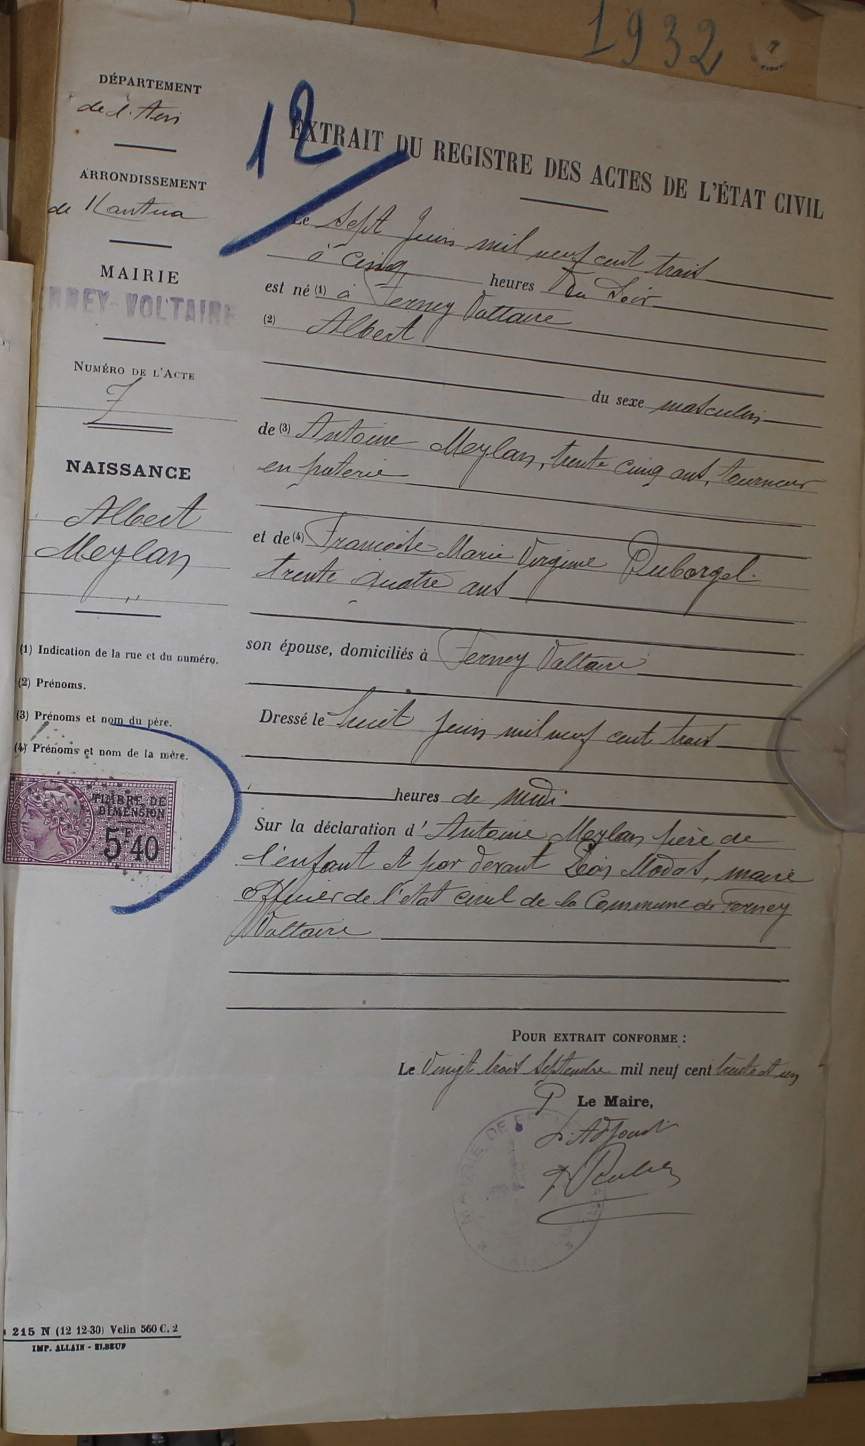 1932
DÉPARTEMENT
de l'Ain
ARRONDISSEMENT
de Nantua
MAIRIE
RNEY-VOLTAIRE
NUMÉRO DE L'ACTE
7
NAISSANCE
Albert
Meylan
(1) Indication de la rue et du numéro.
(2) Prénoms.
(3) Prénoms et nom du père.
(4) Prénoms et nom de la mère.
TIMBRE DE
DIMENSION
5F40
12
EXTRAIT DU REGISTRE DES ACTES DE L'ÉTAT CIVIL
Le Sept Juin mil neuf cent trois
à cinq heures Du Soir
est né (1) à Ferney Voltaire
(2) Albert
du sexe masculin
de (3) Antoine Meylan, trente cinq ans, tourneur
en poterie
et de (4) Francoise Marie Virginie Duborgel
trente quatre ans
son épouse, domiciliés à Ferney Voltaire
Dressé le huit Juin mil neuf cent trois
heures de midi
Sur la déclaration d'Antoine Meylan père de
l'enfant et par devant Léon Modas, maire
officier de l'état civil de la Commune de Ferney
Voltaire
POUR EXTRAIT CONFORME :
Le Vingt trois Septembre mil neuf cent trente et un
P Le Maire,
L'Adjoint
MAIRIE DE
215 N (12 12-30) Velin 560 C. 2
IMP. ALLAIN - ELBEUF